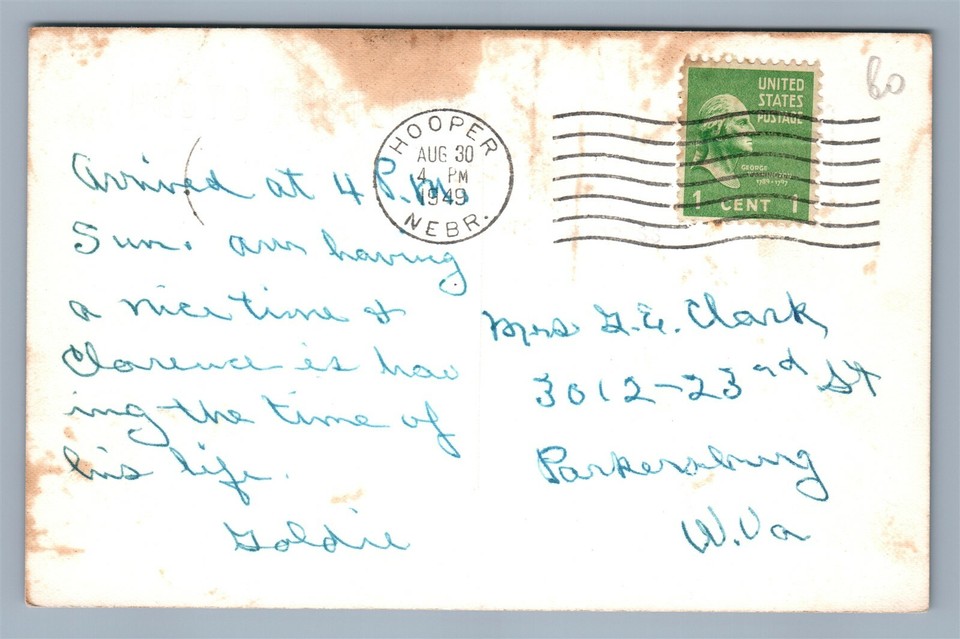 Arrived at 4 P.M.
Sun. am having
a nice time &
Clarence is hav
ing the time of
his life.
Goldie
HOOPER
AUG 30
4 PM
1949
NEBR.
UNITED
STATES
POSTAGE
GEORGE
WASHINGTON
1789-1797
1 CENT 1
80
Mrs G.E. Clark,
3012-23rd St
Parkersburg
W.Va